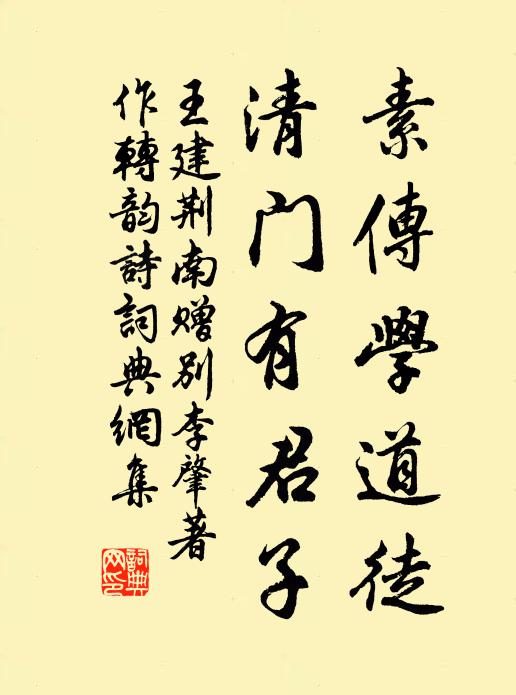 素傳學道徒
清门有君子
王建荆南赠别李肇著
作轉韵詩詞典網集
詞典
网印